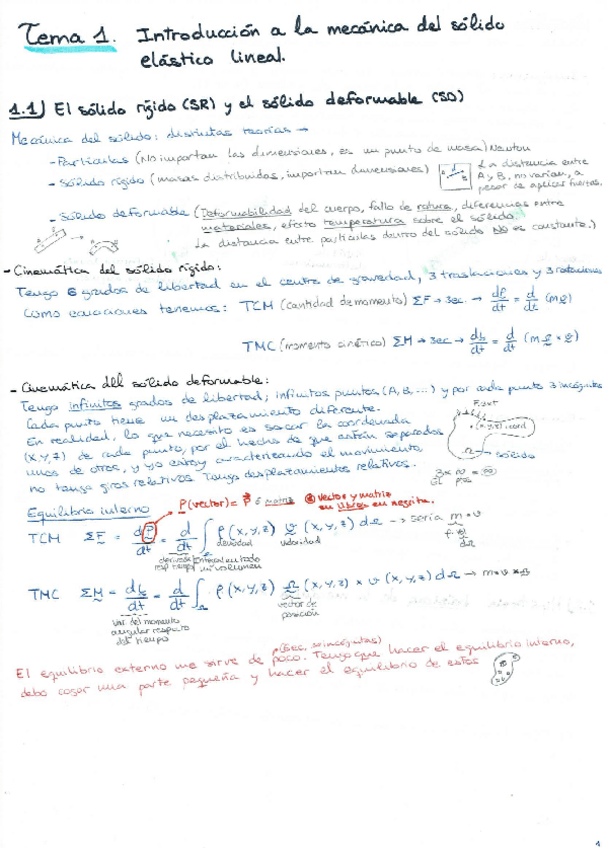 Tema 1. Introducción a la mecánica del sólido
elástico lineal.
1.1) El sólido rígido (SR) y el sólido deformable (SD)
Mecánica del sólido: distintas teorías →
- Partículas (No importan las dimensiones, es un punto de masa) Newton
- Sólido rígido (masas distribuidas, importan dimensiones)
La distancia entre
A y B, no varían, a
pesar de aplicar fuerzas.
- Sólido deformable (Deformabilidad del cuerpo, fallo de rotura, diferencias entre
materiales, efecto temperatura sobre el sólido.
La distancia entre partículas dentro del sólido NO es constante.)
- Cinemática del sólido rígido:
Tengo 6 grados de libertad en el centro de gravedad, 3 traslaciones y 3 rotaciones
Como ecuaciones tenemos: TCM (cantidad de momento) ΣF → 3ec. → dp/dt = d/dt (m v)
TMC (momento cinético) ΣM → 3ec → dL/dt = d/dt (m r × v)
- Cinemática del sólido deformable:
Tengo infinitos grados de libertad, infinitos puntos (A, B, ...) y por cada punto 3 incógnitas
Cada punto tiene un desplazamiento diferente.
En realidad, lo que necesito es sacar la coordenada
(x, y, z) de cada punto, por el hecho de que están separados
unos de otros, y yo estoy caracterizando el movimiento
no tengo giros relativos. Tengo desplazamientos relativos.
F. ext
(x, y, z) coord
Ω → sólido
3 × ∞ = ∞
Equilibrio interno
P (vector) = P ó matriz
vector y matriz
en libros en negrita.
TCM ΣF = dP/dt = d/dt ∫ ρ (x, y, z) v (x, y, z) dΩ → sería m · v
densidad
velocidad
TMC ΣM = dL/dt = d/dt ∫Ω ρ (x, y, z) r (x, y, z) × v (x, y, z) dΩ → m · v
Var del momento
angular respecto
del tiempo
vector de
posición
(6ec, ∞ incógnitas)
El equilibrio externo me sirve de poco. Tengo que hacer el equilibrio interno,
debo coger una parte pequeña y hacer el equilibrio de estos
1